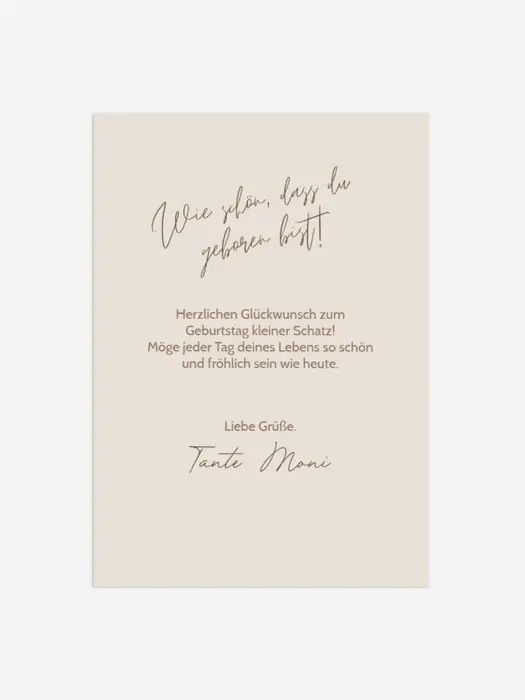 Wie schön, dass du
geboren bist!
Herzlichen Glückwunsch zum
Geburtstag kleiner Schatz!
Möge jeder Tag deines Lebens so schön
und fröhlich sein wie heute.
Liebe Grüße.
Tante Moni